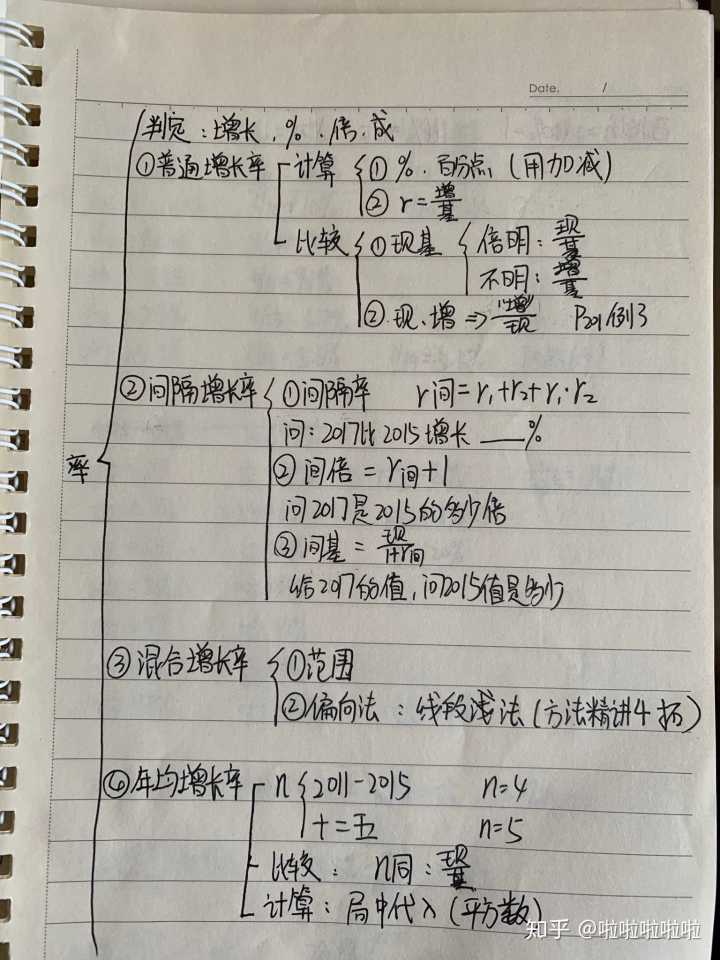 Date. /
判定：增长、%、倍、成
①普通增长率 计算 ①%、百分点（用加减）
②r=增/基
比较 ①现基 倍明：现/基
不明：增/基
②现、增⇒"增"/现 P201例3
②间隔增长率 ①间隔率 r间=r₁+r₂+r₁·r₂
问：2017比2015增长 ___%
率 ②间倍=r间+1
问2017是2015的多少倍
③间基=现/1+r间
给2017的值，问2015值是多少
③混合增长率 ①范围
②偏向法：线段浅法（方法精讲4拓）
④年均增长率 n 2011-2015 n=4
十二五 n=5
比较：n同：现/基
计算：居中代入（平方数）
知乎 @啦啦啦啦啦